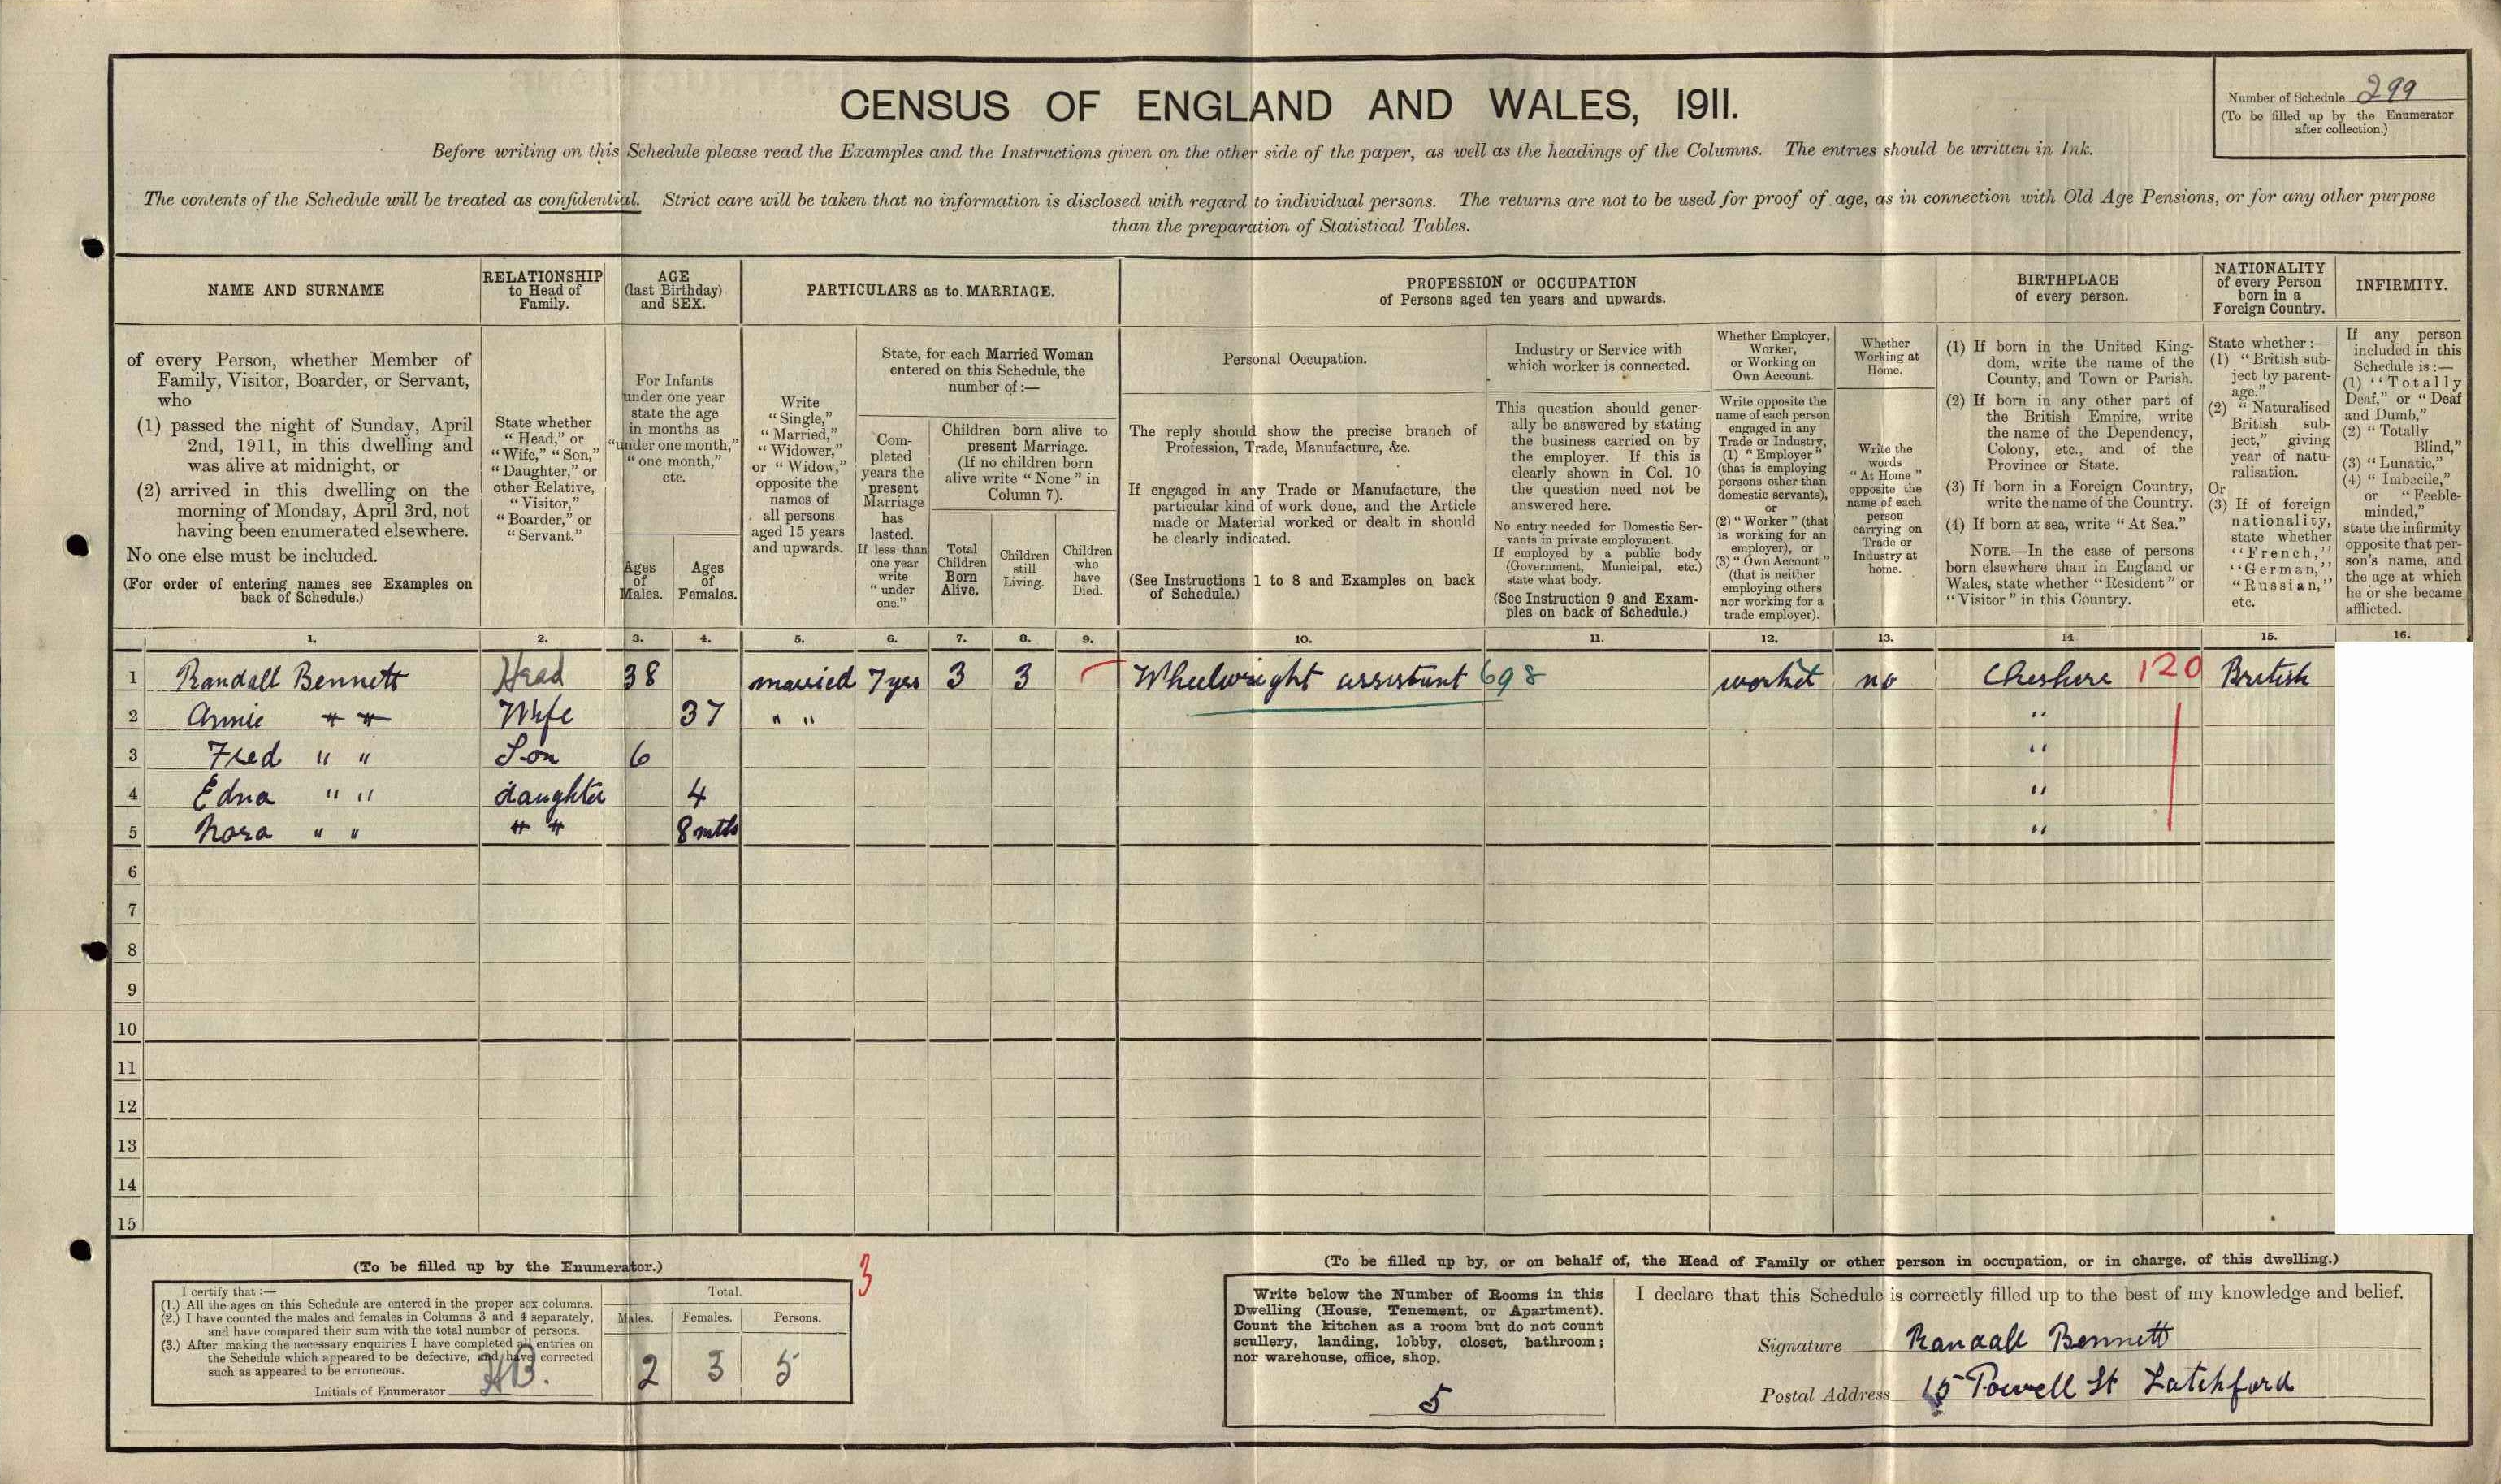 CENSUS OF ENGLAND AND WALES, 1911.
Number of Schedule 299
(To be filled up by the Enumerator
after collection.)
Before writing on this Schedule please read the Examples and the Instructions given on the other side of the paper, as well as the headings of the Columns. The entries should be written in Ink.
The contents of the Schedule will be treated as confidential. Strict care will be taken that no information is disclosed with regard to individual persons. The returns are not to be used for proof of age, as in connection with Old Age Pensions, or for any other purpose
than the preparation of Statistical Tables.
NAME AND SURNAME
of every Person, whether Member of
Family, Visitor, Boarder, or Servant,
who
(1) passed the night of Sunday, April
2nd, 1911, in this dwelling and
was alive at midnight, or
(2) arrived in this dwelling on the
morning of Monday, April 3rd, not
having been enumerated elsewhere.
No one else must be included.
(For order of entering names see Examples on
back of Schedule.)
RELATIONSHIP
to Head of
Family.
State whether
"Head," or
"Wife," "Son,"
"Daughter," or
other Relative,
"Visitor,"
"Boarder," or
"Servant."
AGE
(last Birthday)
and SEX.
For Infants
under one year
state the age
in months as
"under one month,"
"one month,"
etc.
Ages
of
Males.
Ages
of
Females.
PARTICULARS as to MARRIAGE.
Write
"Single,"
"Married,"
"Widower,"
or "Widow,"
opposite the
names of
all persons
aged 15 years
and upwards.
State, for each Married Woman
entered on this Schedule, the
number of:—
Com-
pleted
years the
present
Marriage
has
lasted.
If less than
one year
write
"under
one."
Children born alive to
present Marriage.
(If no children born
alive write "None" in
Column 7).
Total
Children
Born
Alive.
Children
still
Living.
Children
who
have
Died.
PROFESSION or OCCUPATION
of Persons aged ten years and upwards.
Personal Occupation.
The reply should show the precise branch of
Profession, Trade, Manufacture, &c.
If engaged in any Trade or Manufacture, the
particular kind of work done, and the Article
made or Material worked or dealt in should
be clearly indicated.
(See Instructions 1 to 8 and Examples on back
of Schedule.)
Industry or Service with
which worker is connected.
This question should gener-
ally be answered by stating
the business carried on by
the employer. If this is
clearly shown in Col. 10
the question need not be
answered here.
No entry needed for Domestic Ser-
vants in private employment.
If employed by a public body
(Government, Municipal, etc.)
state what body.
(See Instruction 9 and Exam-
ples on back of Schedule.)
Whether Employer,
Worker,
or Working on
Own Account.
Write opposite the
name of each person
engaged in any
Trade or Industry,
(1) "Employer"
(that is employing
persons other than
domestic servants),
or
(2) "Worker" (that
is working for an
employer), or
(3) "Own Account"
(that is neither
employing others
nor working for a
trade employer).
Whether
Working at
Home.
Write the
words
"At Home"
opposite the
name of each
person
carrying on
Trade or
Industry at
home.
BIRTHPLACE
of every person.
(1) If born in the United King-
dom, write the name of the
County, and Town or Parish.
(2) If born in any other part of
the British Empire, write
the name of the Dependency,
Colony, etc., and of the
Province or State.
(3) If born in a Foreign Country,
write the name of the Country.
(4) If born at sea, write "At Sea."
NOTE.—In the case of persons
born elsewhere than in England or
Wales, state whether "Resident" or
"Visitor" in this Country.
NATIONALITY
of every Person
born in a
Foreign Country.
State whether:—
(1) "British sub-
ject by parent-
age."
(2) "Naturalised
British sub-
ject," giving
year of natu-
ralisation.
Or
(3) If of foreign
nationality,
state whether
"French,"
"German,"
"Russian,"
etc.
INFIRMITY.
If any person
included in this
Schedule is:—
(1) "Totally
Deaf," or "Deaf
and Dumb,"
(2) "Totally
Blind,"
(3) "Lunatic,"
(4) "Imbecile,"
or "Feeble-
minded,"
state the infirmity
opposite that per-
son's name, and
the age at which
he or she became
afflicted.
1. 2. 3. 4. 5. 6. 7. 8. 9. 10. 11. 12. 13. 14 15. 16.
1 Randall Bennett Head 38 married 7 yrs 3 3 Wheelwright assistant 698 worker no Cheshire 120 British
2 Annie " " Wife 37 " " "
3 Fred " " Son 6 "
4 Edna " " daughter 4 "
5 Nora " " " " 8 mths "
6
7
8
9
10
11
12
13
14
15
(To be filled up by the Enumerator.)
I certify that:—
(1.) All the ages on this Schedule are entered in the proper sex columns.
(2.) I have counted the males and females in Columns 3 and 4 separately,
and have compared their sum with the total number of persons.
(3.) After making the necessary enquiries I have completed all entries on
the Schedule which appeared to be defective, and have corrected
such as appeared to be erroneous.
Initials of Enumerator
Total.
Males. Females. Persons.
2 3 5
3
(To be filled up by, or on behalf of, the Head of Family or other person in occupation, or in charge, of this dwelling.)
Write below the Number of Rooms in this
Dwelling (House, Tenement, or Apartment).
Count the kitchen as a room but do not count
scullery, landing, lobby, closet, bathroom;
nor warehouse, office, shop.
5
I declare that this Schedule is correctly filled up to the best of my knowledge and belief.
Signature Randall Bennett
Postal Address 15 Powell St Latchford